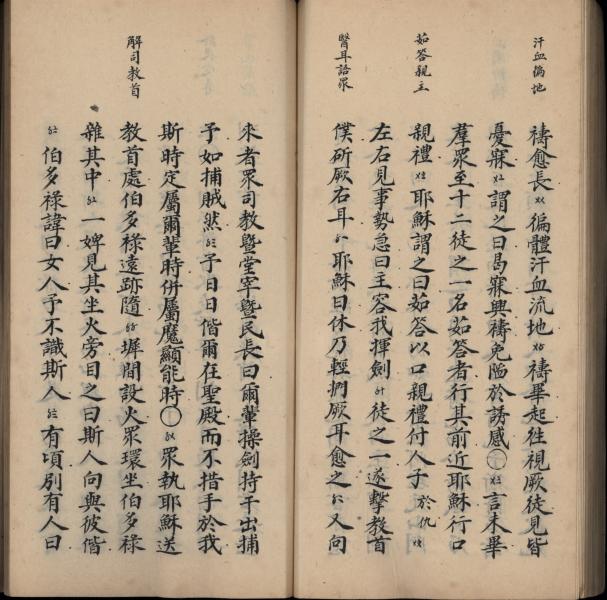 汗血徧地
茹答親主
醫耳語眾
禱愈長 徧體汗血流地 禱畢起徃視厥徒見皆
憂寐 謂之曰曷寐興禱免陷於誘感 言未畢
群眾至十二徒之一名茹答者行其前近耶穌行口
親禮 耶穌謂之曰茹答以口親禮付人子於仇
左右見事勢急曰主容我揮劍 徒之一遂擊教首
僕斫厥右耳 耶穌曰休乃輕捫厥耳愈之 又向
解司教首
來者眾司教暨堂宰暨民長曰爾輩操劍持干出捕
予如捕賊然 予日日偕爾在聖殿而不措手於我
斯時定屬爾輩時併屬魔顯能時 眾執耶穌送
教首處伯多祿遠跡隨 墀間設火眾環坐伯多祿
雜其中 一婢見其坐火旁目之曰斯人向與彼偕
伯多祿諱曰女人予不識斯人 有頃別有人曰